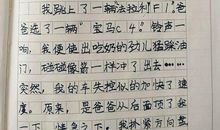 我跳上了一辆法拉利“F1”,爸
爸选了一辆“宝马C4”。铃声一
响,我便使出吃奶的劲儿猛踩油
门,碰碰像箭一样冲了出去……
突然,我的车失控似的加快了速
度。原来,是爸爸从后面顶了我
一下。情急之下,我扑紧方向盘